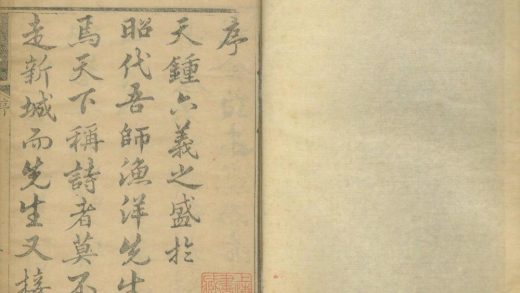 序
天鍾六義之盛於
昭代吾師漁洋先生
焉天下稱詩者莫不
走新城而先生又接
序